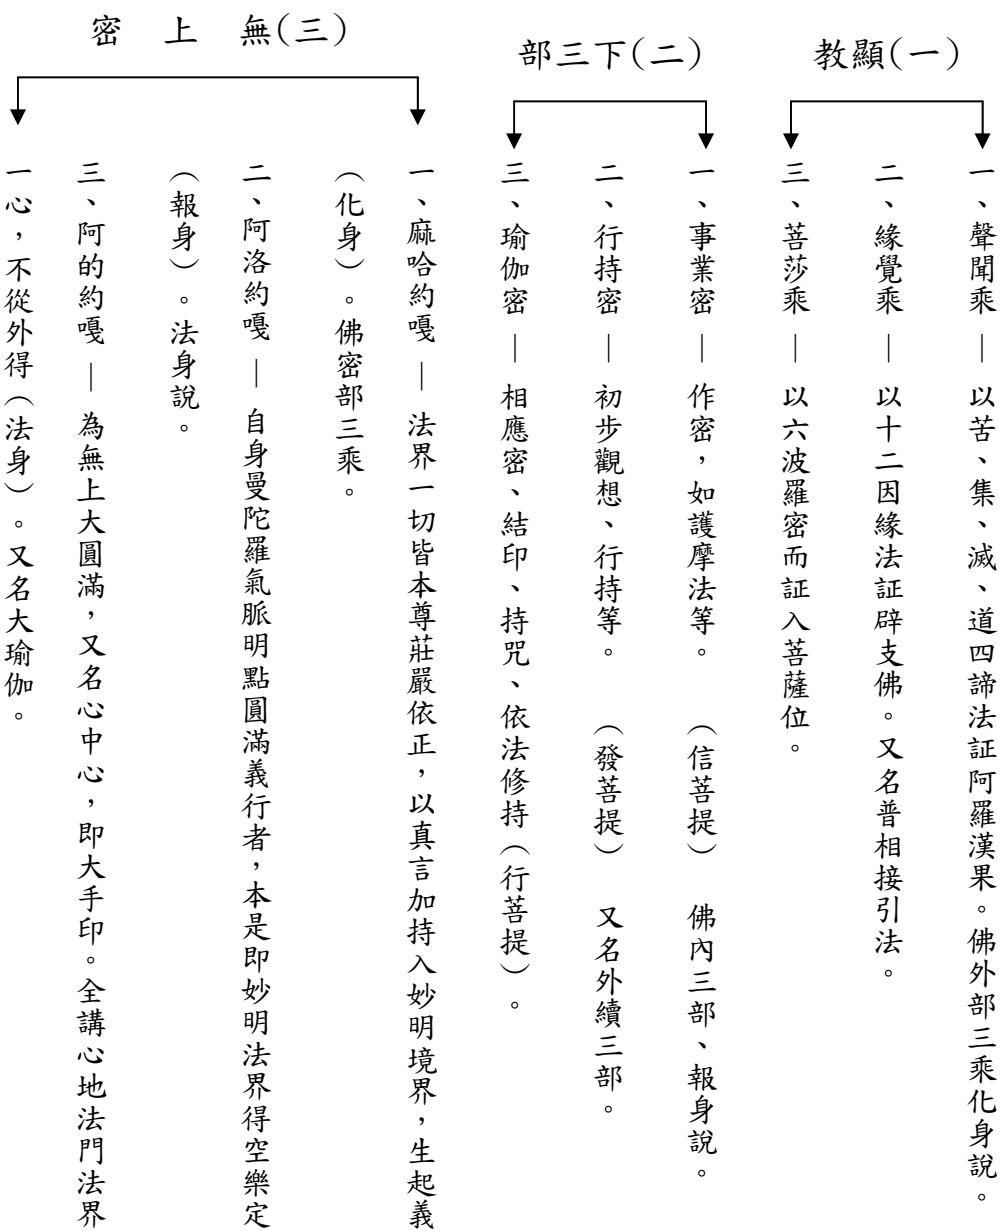 (一)顯教
一、聲聞乘 — 以苦、集、滅、道四諦法証阿羅漢果。佛外部三乘化身說。
二、緣覺乘 — 以十二因緣法証辟支佛。又名普相接引法。
三、菩莎乘 — 以六波羅密而証入菩薩位。
(二)下三部
一、事業密 — 作密，如護摩法等。 （信菩提） 佛內三部、報身說。
二、行持密 — 初步觀想、行持等。 （發菩提） 又名外續三部。
三、瑜伽密 — 相應密、結印、持咒、依法修持（行菩提）。
(三)無上密
一、麻哈約嘎 — 法界一切皆本尊莊嚴依正，以真言加持入妙明境界，生起義
（化身）。佛密部三乘。
二、阿洛約嘎 — 自身曼陀羅氣脈明點圓滿義行者，本是即妙明法界得空樂定
（報身）。法身說。
三、阿的約嘎 — 為無上大圓滿，又名心中心，即大手印。全講心地法門法界
一心，不從外得（法身）。又名大瑜伽。